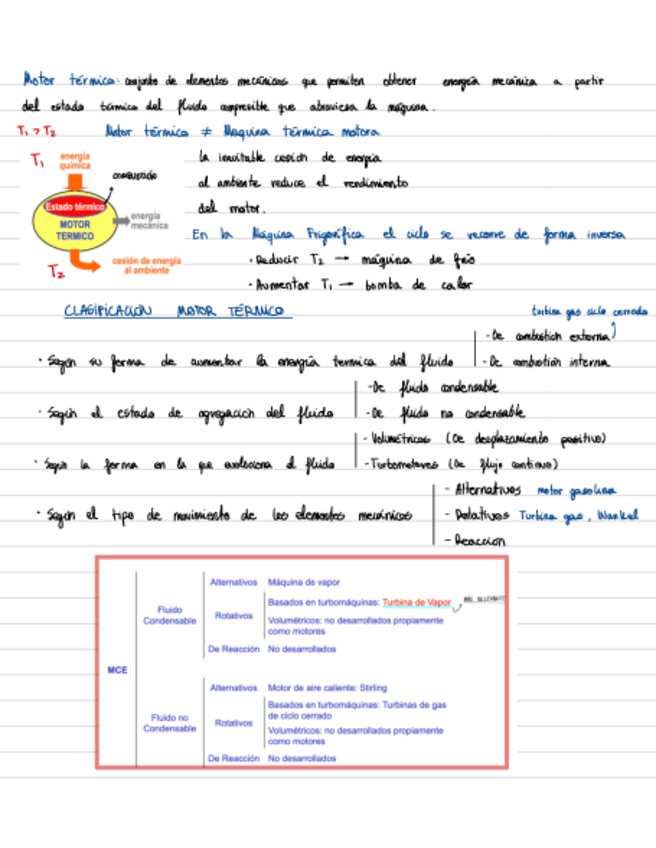 Motor térmico: conjunto de elementos mecánicos que permiten obtener energía mecánica a partir
del estado térmico del fluido compresible que atraviesa la máquina.
T₁ > T₂ Motor térmico ≠ Maquina térmica motora
T₁ energía química
combustión
Estado térmico
MOTOR TERMICO
energía mecánica
T₂ cesión de energía al ambiente
la inevitable cesión de energía
al ambiente reduce el rendimiento
del motor.
En la Máquina Frigorífica el ciclo se recorre de forma inversa
· Reducir T₂ → máquina de frío
· Aumentar T₁ → bomba de calor
CLASIFICACIÓN MOTOR TÉRMICO
turbina gas ciclo cerrado
· Según su forma de aumentar la energía termica del fluido
- De combustión externa
- De combustión interna
· Según el estado de agregación del fluido
- De fluido condensable
- De fluido no condensable
· Según la forma en la que evoluciona el fluido
- Volumétricos (De desplazamiento positivo)
- Turbomotores (De flujo continuo)
· Según el tipo de movimiento de los elementos mecánicos
- Alternativos motor gasolina
- Rotativos Turbina gas, Wankel
- Reacción
MCE
Fluido Condensable
Alternativos Máquina de vapor
Rotativos
Basados en turbomáquinas: Turbina de Vapor
Volumétricos: no desarrollados propiamente
como motores
De Reacción No desarrollados
Fluido no Condensable
Alternativos Motor de aire caliente: Stirling
Rotativos
Basados en turbomáquinas: Turbinas de gas
de ciclo cerrado
Volumétricos: no desarrollados propiamente
como motores
De Reacción No desarrollados